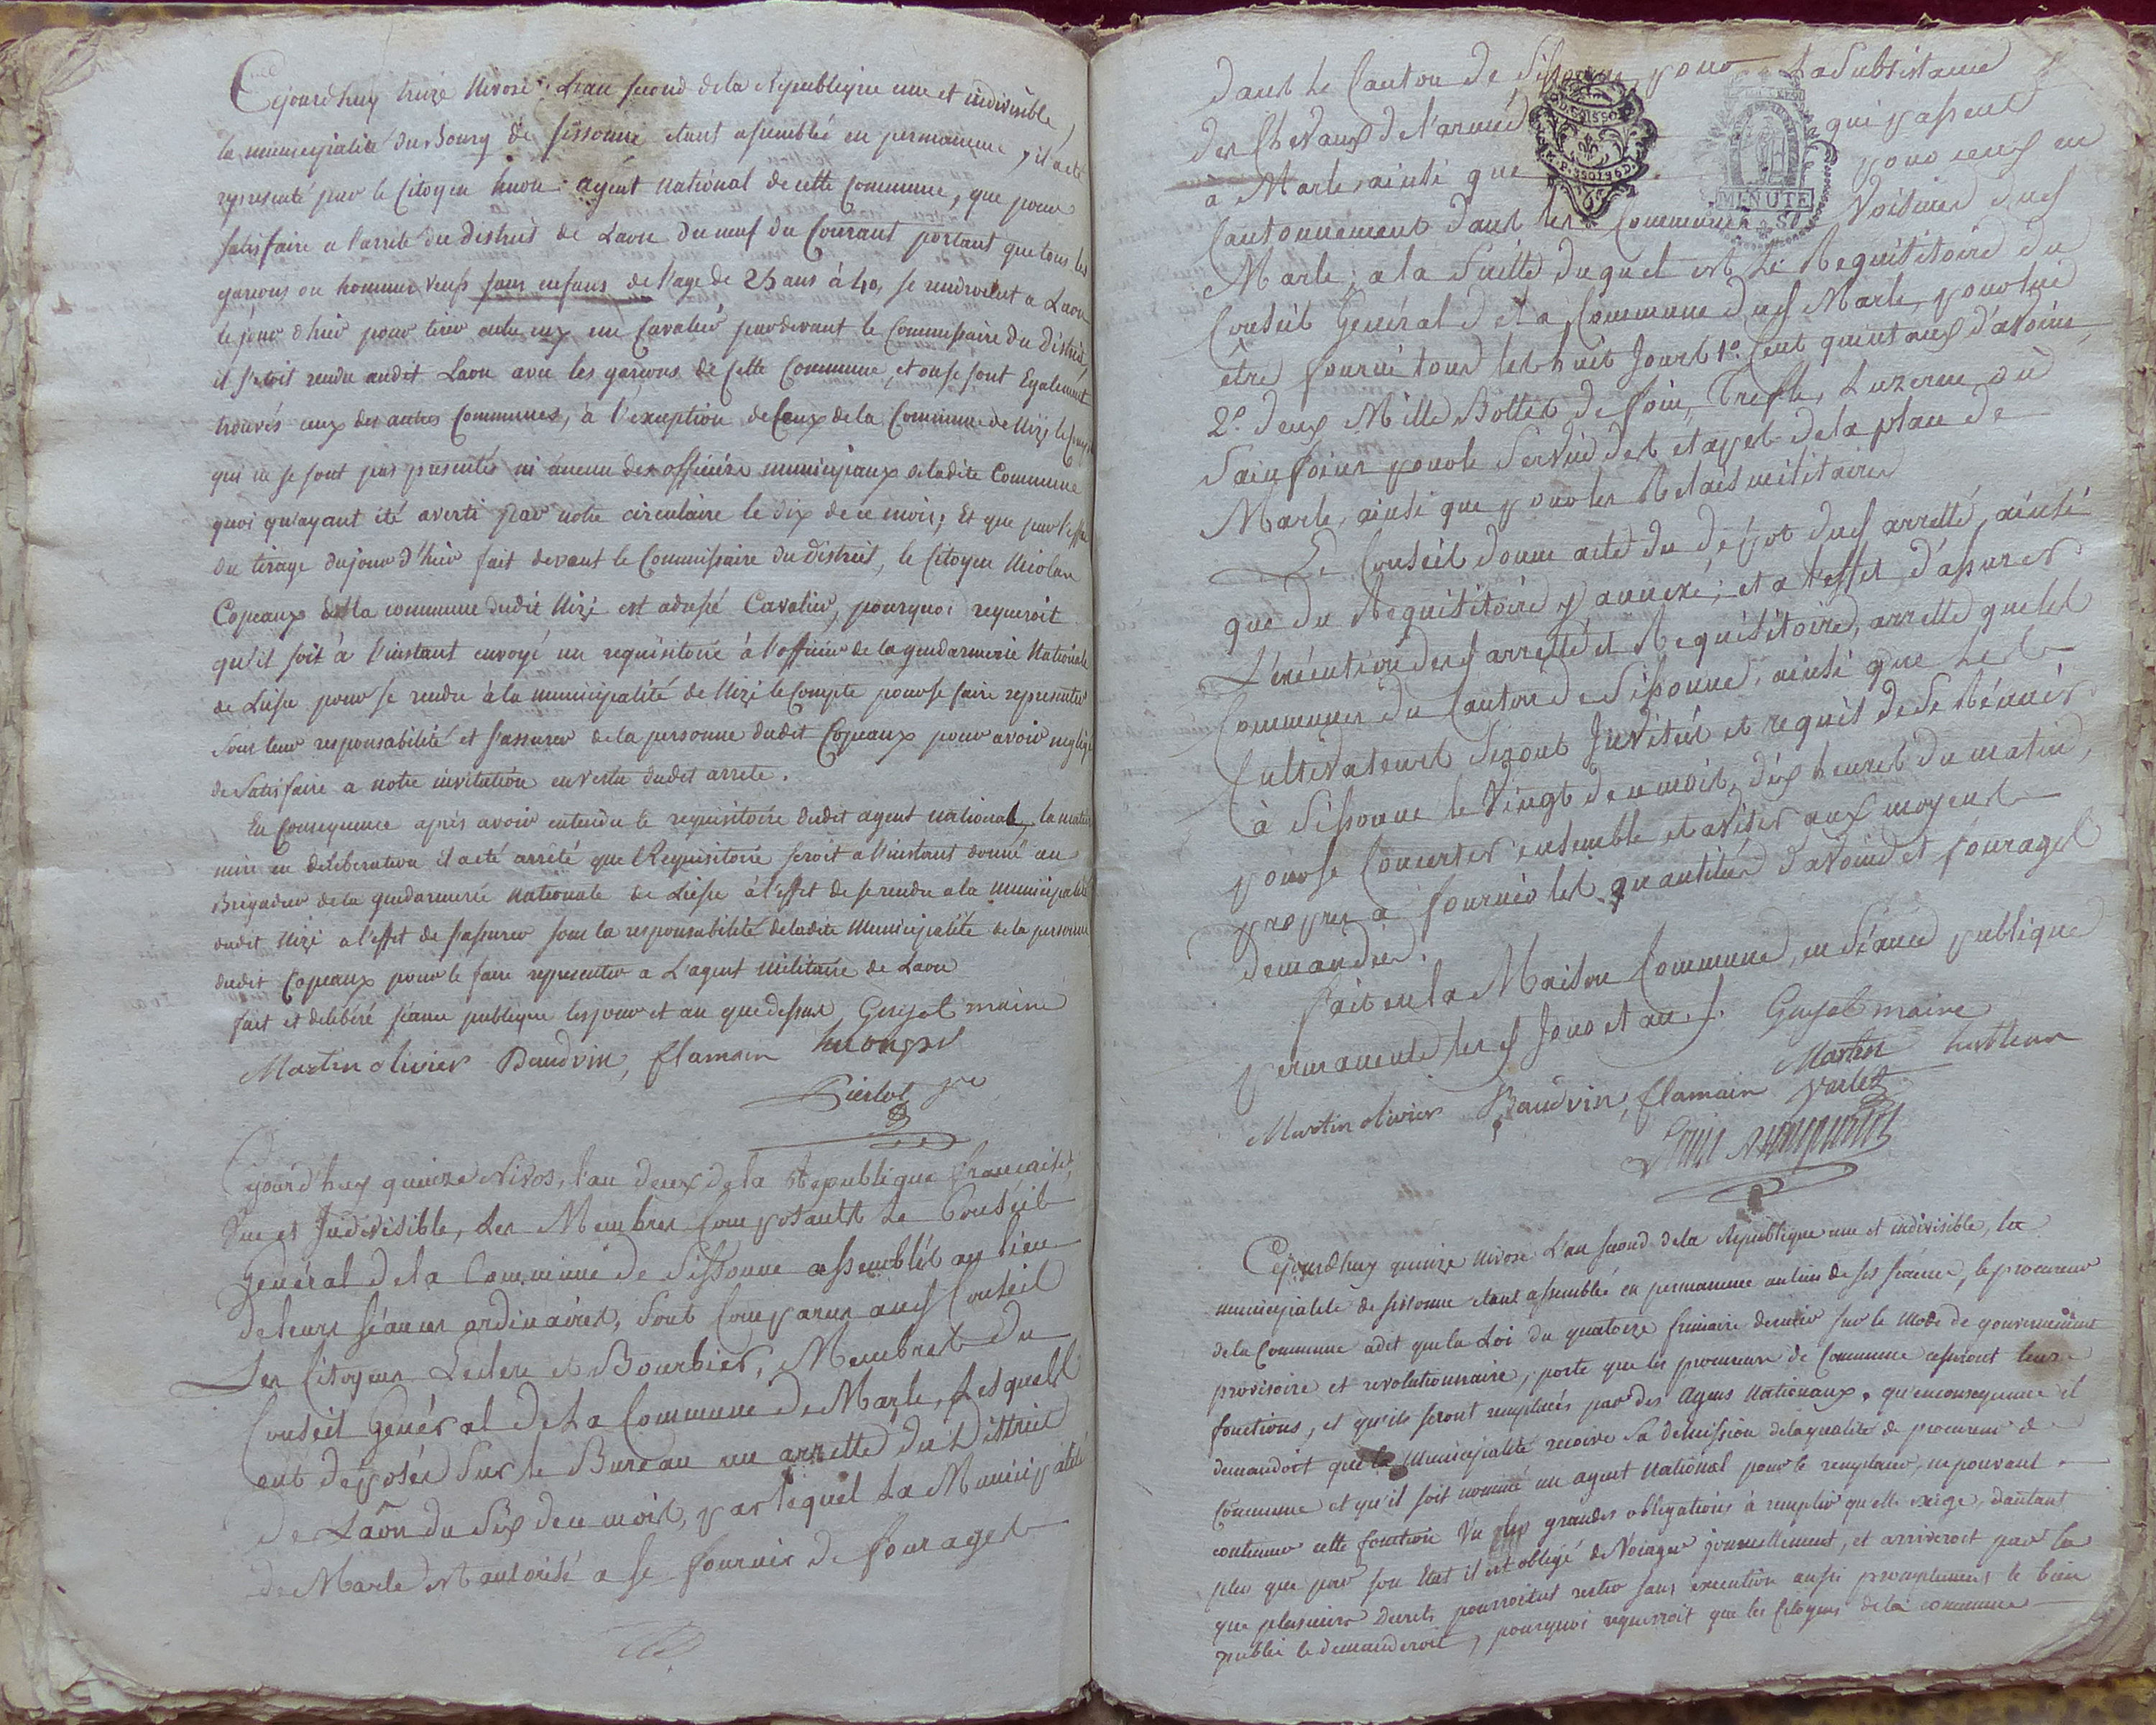 Cejourdhuy treize Nivose L'an second de la Republique une et indivisible,
la municipalité du Bourg de Sissonne etant assemblée en permanence, il a eté
representé par le Citoyen huon agent national de cette Commune, que pour
satisfaire a l'arrete du district de Laon du neuf du Courant portant que tous les
garçons ou hommes veufs sans enfans de l'age de 25 ans à 40, se rendroient a Laon
le jour d'hier pour tirer entre eux un Cavalier pardevant le Commissaire du District,
il s'etoit rendu audit Laon avec les garçons de cette Commune, et ou se sont Egalement
trouvés ceux des autres Communes, à l'exception de Ceux de la Commune de Nizy le Compte
qui ne se sont pas presentés ni aucun des officiers municipaux de ladite Commune
quoi qu'ayant été averti par notre circulaire le dix de ce mois; Et que par l'effet
du tirage du jour d'hier fait devant le Commissaire du District, le Citoyen Nicolas
Copeaux de la commune dudit Nizi est Cavalier, pourquoi requeroit
qu'il soit à l'instant envoyé un requisitoire à l'officier de la gendarmerie Nationale
de Liesse pour se rendre à la municipalité de Nizi le Compte pour se faire representer
sous leur responsabilité et s'assurer de la personne dudit Copeaux pour avoir negligé
de Satisfaire a notre invitation en vertu dudit arreté.
En Consequence après avoir entendu le requisitoire dudit agent national, la matiere
mise en deliberation il a eté arrêté que Requisitoire seroit a l'instant donné au
Brigadier de la gendarmerie Nationale de Liesse à l'effet de se rendre a la municipalité
dudit Nizi a l'effet de s'assurer sous la responsabilité de ladite Municipalité de la personne
dudit Copeaux pour le faire representer a L'agent militaire de Laon
fait et deliberé séance publique les jour et an que dessus Guyot maire
Martin olivier Baudvin, flamain huon
Pierlot
Cejourd'huy quinze Nivos, l'an deux de la République française,
Une et Indivisible, Les Membres Composants Le Conseil
général de la Commune de Sissonne assemblés au lieu
de leurs séances ordinaires, sont Comparus aud Conseil
Les Citoyens Leclerc et Bourbier, Membres du
Conseil Général de La Commune de Marle, Lesquels
ont déposés sur le Bureau un arretté du District
de Laon du Six de ce mois, par lequel La Municipalité
de Marle est autorisé a se fournir de fourages
dans le Canton de Sissonne pour La Subsistance
des Chevaux de l'armée qui passent
à Marle, ainsi que pour ceux en
Cantonnement dans les Communes Voisines dud
MINUTE
Marle; a la Suitte duquel est Le Requisitoire du
Conseil Général de la Commune dud Marle, pour lui
être fourni tous les huit Jours 1° Cent quintaux d'avoine,
2° deux Mille Bottes de foin, Trefle, Luzerne ou
Sainfoins pour le Service des etapes de la place de
Marle, ainsi que pour les Relais militaires
Le Conseil donne acte du dépot dud arretté, ainsi
que du Requisitoire y annexé; et a l'effet d'assurer
L'exécution desd arretté et Requisitoire, arrette que les
Communes du Canton de Sissonne, ainsi que Les
Cultivateurs Seront Invités et requis de Se Réunir
à Sissonne le Vingt de ce mois, dix heures du matin,
pour se Concerter ensemble et aviser aux moyens
propres a fournir les quantités d'avoine et fourages
demandées.
fait en la Maison Commune, en Séance publique
permanente les d Jour et an. Guyot maire
Martin
Martin olivier Baudvin, flamain Varlet
Cejourdhuy quinze nivose L'an second de la Republique une et indivisible, la
municipalité de sissonne etant assemblée en permanence au lieu de ses séances, le procureur
de la Commune a dit que la Loi du quatorze frimaire dernier sur le mode de gouvernement
provisoire et revolutionnaire, porte que les procureurs de Commune cesseront leurs
fonctions, et qu'ils seront remplacés par des Agens Nationaux, qu'en consequence il
demandoit que la Municipalité recoive sa demission de la qualité de procureur de
Commune et qu'il soit nommé un agent National pour le remplacer, ne pouvant
continuer cette fonction Vu les grandes obligations à remplir qu'elle exige, dautant
plus que par son Etat il est obligé de Voiager journellement, et arriveroit par la
que plusieurs decrets pourroient rester sans execution aussi promptement le bien
public le demanderoit, pourquoi requerroit que les Citoyens de la commune